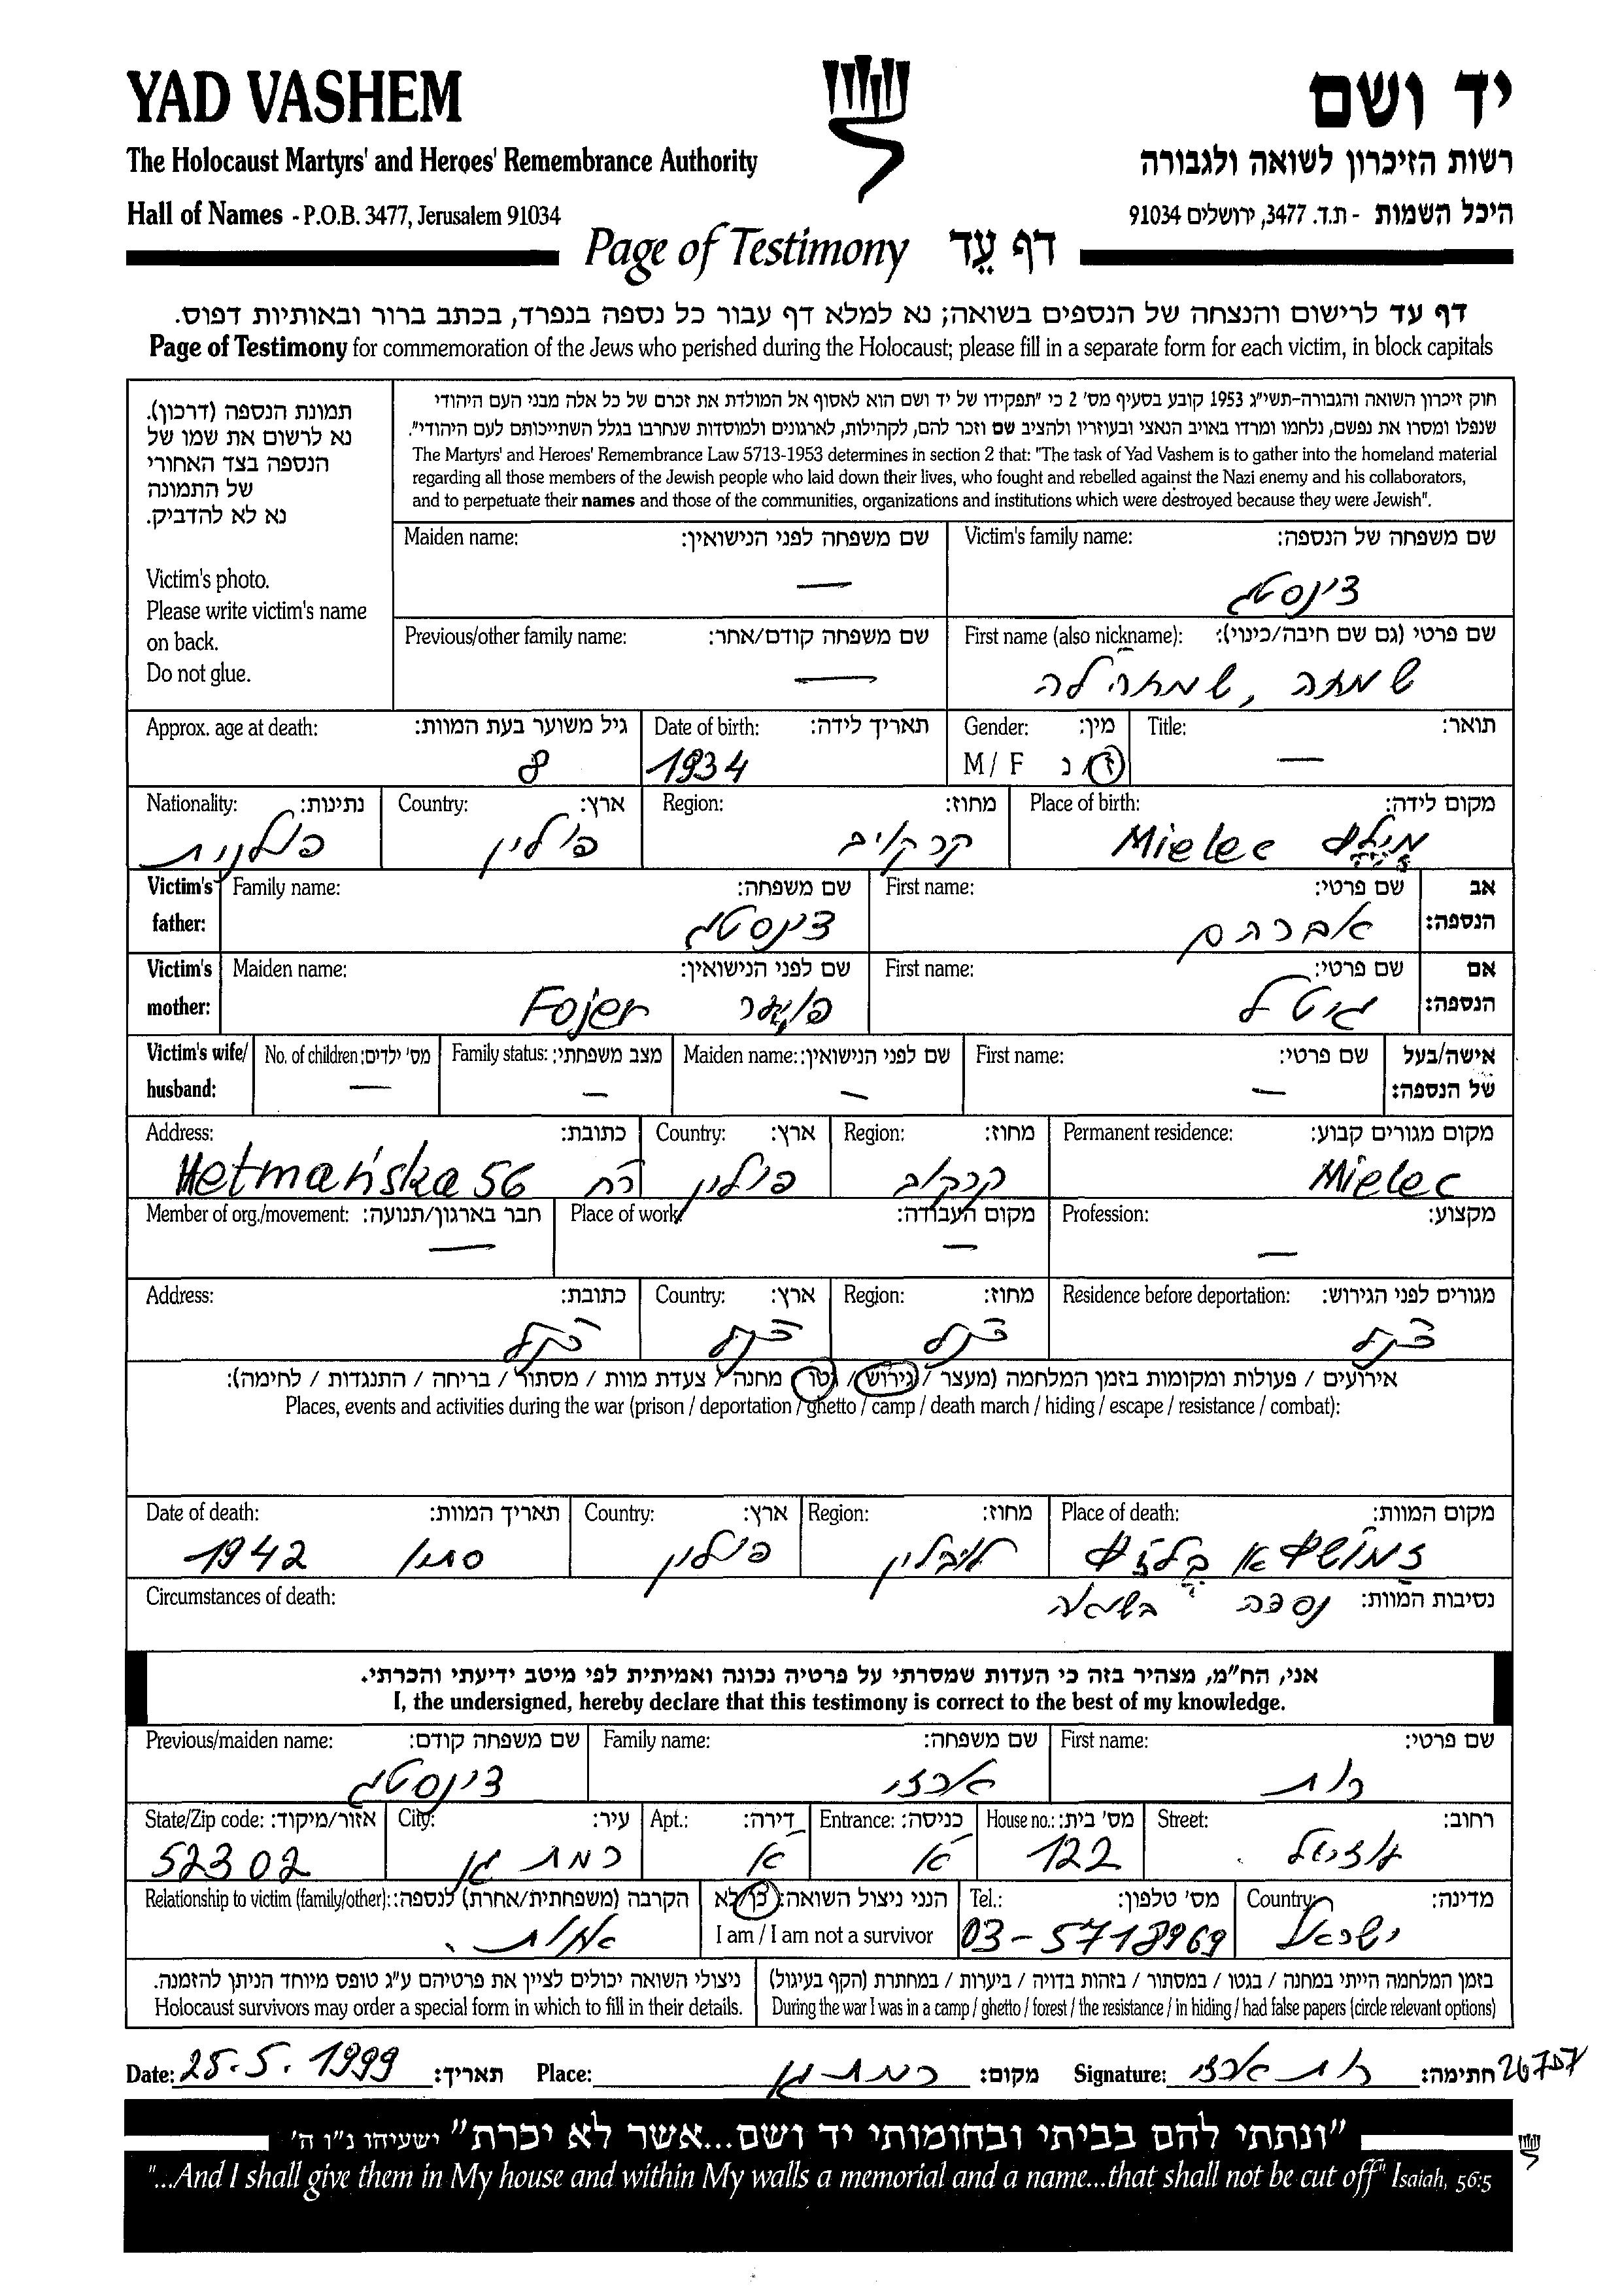 YAD VASHEM
יד ושם
The Holocaust Martyrs' and Heroes' Remembrance Authority
רשות הזיכרון לשואה ולגבורה
Hall of Names - P.O.B. 3477, Jerusalem 91034
היכל השמות - ת.ד. 3477, ירושלים 91034
Page of Testimony דף עֵד
דף עד לרישום והנצחה של הנספים בשואה; נא למלא דף עבור כל נספה בנפרד, בכתב ברור ובאותיות דפוס.
Page of Testimony for commemoration of the Jews who perished during the Holocaust; please fill in a separate form for each victim, in block capitals
תמונת הנספה (דרכון).
נא לרשום את שמו של
הנספה בצד האחורי
של התמונה
נא לא להדביק.
Victim's photo.
Please write victim's name
on back.
Do not glue.
חוק זיכרון השואה והגבורה-תשי"ג 1953 קובע בסעיף מס' 2 כי "תפקידו של יד ושם הוא לאסוף אל המולדת את זכרם של כל אלה מבני העם היהודי
שנפלו ומסרו את נפשם, נלחמו ומרדו באויב הנאצי ובעוזריו ולהציב שם וזכר להם, לקהילות, לארגונים ולמוסדות שנחרבו בגלל השתייכותם לעם היהודי".
The Martyrs' and Heroes' Remembrance Law 5713-1953 determines in section 2 that: "The task of Yad Vashem is to gather into the homeland material
regarding all those members of the Jewish people who laid down their lives, who fought and rebelled against the Nazi enemy and his collaborators,
and to perpetuate their names and those of the communities, organizations and institutions which were destroyed because they were Jewish".
Maiden name: שם משפחה לפני הנישואין: Victim's family name: שם משפחה של הנספה:
— צינסטג
Previous/other family name: שם משפחה קודם/אחר: First name (also nickname): שם פרטי (גם שם חיבה/כינוי):
— שמחה, שמחה'לה
Approx. age at death: גיל משוער בעת המוות: Date of birth: תאריך לידה: Gender: מין: Title: תואר:
8 1934 M / F ז / נ —
Nationality: נתינות: Country: ארץ: Region: מחוז: Place of birth: מקום לידה:
פולנית פולין קרקוב Mielec
Victim's father: Family name: שם משפחה: First name: שם פרטי: אב הנספה:
צינסטג אברהם
Victim's mother: Maiden name: שם לפני הנישואין: First name: שם פרטי: אם הנספה:
Fojer גיטל
Victim's wife/ husband: No. of children: מס' ילדים: Family status: מצב משפחתי: Maiden name: שם לפני הנישואין: First name: שם פרטי: אישה/בעל של הנספה:
— — — —
Address: כתובת: Country: ארץ: Region: מחוז: Permanent residence: מקום מגורים קבוע:
רח Hetmańska 56 פולין קרקוב Mielec
Member of org./movement: חבר בארגון/תנועה: Place of work: מקום העבודה: Profession: מקצוע:
— — —
Address: כתובת: Country: ארץ: Region: מחוז: Residence before deportation: מגורים לפני הגירוש:
כנ"ל כנ"ל כנ"ל כנ"ל
אירועים / פעולות ומקומות בזמן המלחמה (מעצר / גירוש / גטו / מחנה / צעדת מוות / מסתור / בריחה / התנגדות / לחימה):
Places, events and activities during the war (prison / deportation / ghetto / camp / death march / hiding / escape / resistance / combat):
Date of death: תאריך המוות: Country: ארץ: Region: מחוז: Place of death: מקום המוות:
סתיו 1942 פולין לובלין
Circumstances of death: נסיבות המוות: נספה בשואה
אני, הח"מ, מצהיר בזה כי העדות שמסרתי על פרטיה נכונה ואמיתית לפי מיטב ידיעתי והכרתי.
I, the undersigned, hereby declare that this testimony is correct to the best of my knowledge.
Previous/maiden name: שם משפחה קודם: Family name: שם משפחה: First name: שם פרטי:
צינסטג ארזי רות
State/Zip code: אזור/מיקוד: City: עיר: Apt.: דירה: Entrance: כניסה: House no.: מס' בית: Street: רחוב:
52302 רמת גן א א 122 עוזיאל
Relationship to victim (family/other): הקרבה (משפחתית/אחרת) לנספה: הנני ניצול השואה: כן/לא Tel.: מס' טלפון: Country: מדינה:
אחות. I am / I am not a survivor 03-5718969 ישראל
ניצולי השואה יכולים לציין את פרטיהם ע"ג טופס מיוחד הניתן להזמנה. בזמן המלחמה הייתי במחנה / בגטו / במסתור / בזהות בדויה / ביערות / במחתרת (הקף בעיגול)
Holocaust survivors may order a special form in which to fill in their details. During the war I was in a camp / ghetto / forest / the resistance / in hiding / had false papers (circle relevant options)
Date: 25.5.1999 תאריך: Place: רמת גן מקום: Signature: רות ארזי חתימה: 26757
"ונתתי להם בביתי ובחומותי יד ושם...אשר לא יכרת" ישעיהו נ"ו ה'
"...And I shall give them in My house and within My walls a memorial and a name...that shall not be cut off" Isaiah, 56:5